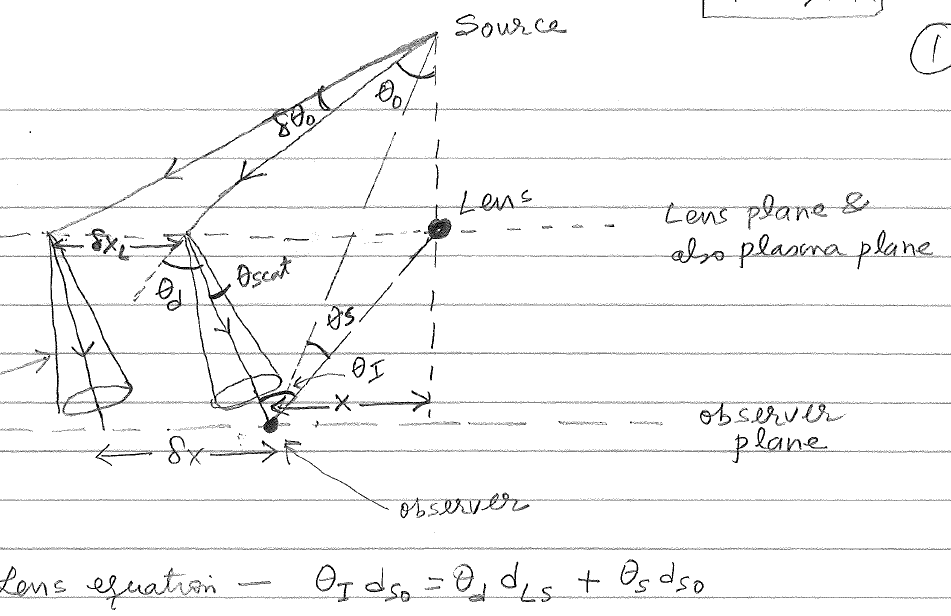 Source
1
θ₀
δθ₀
Lens
Lens plane &
also plasma plane
δx_L
θ_d
θscat
θs
θ_I
x
observer
plane
δx
observer
Lens equation — θ_I d_so = θ_d d_LS + θ_s d_so